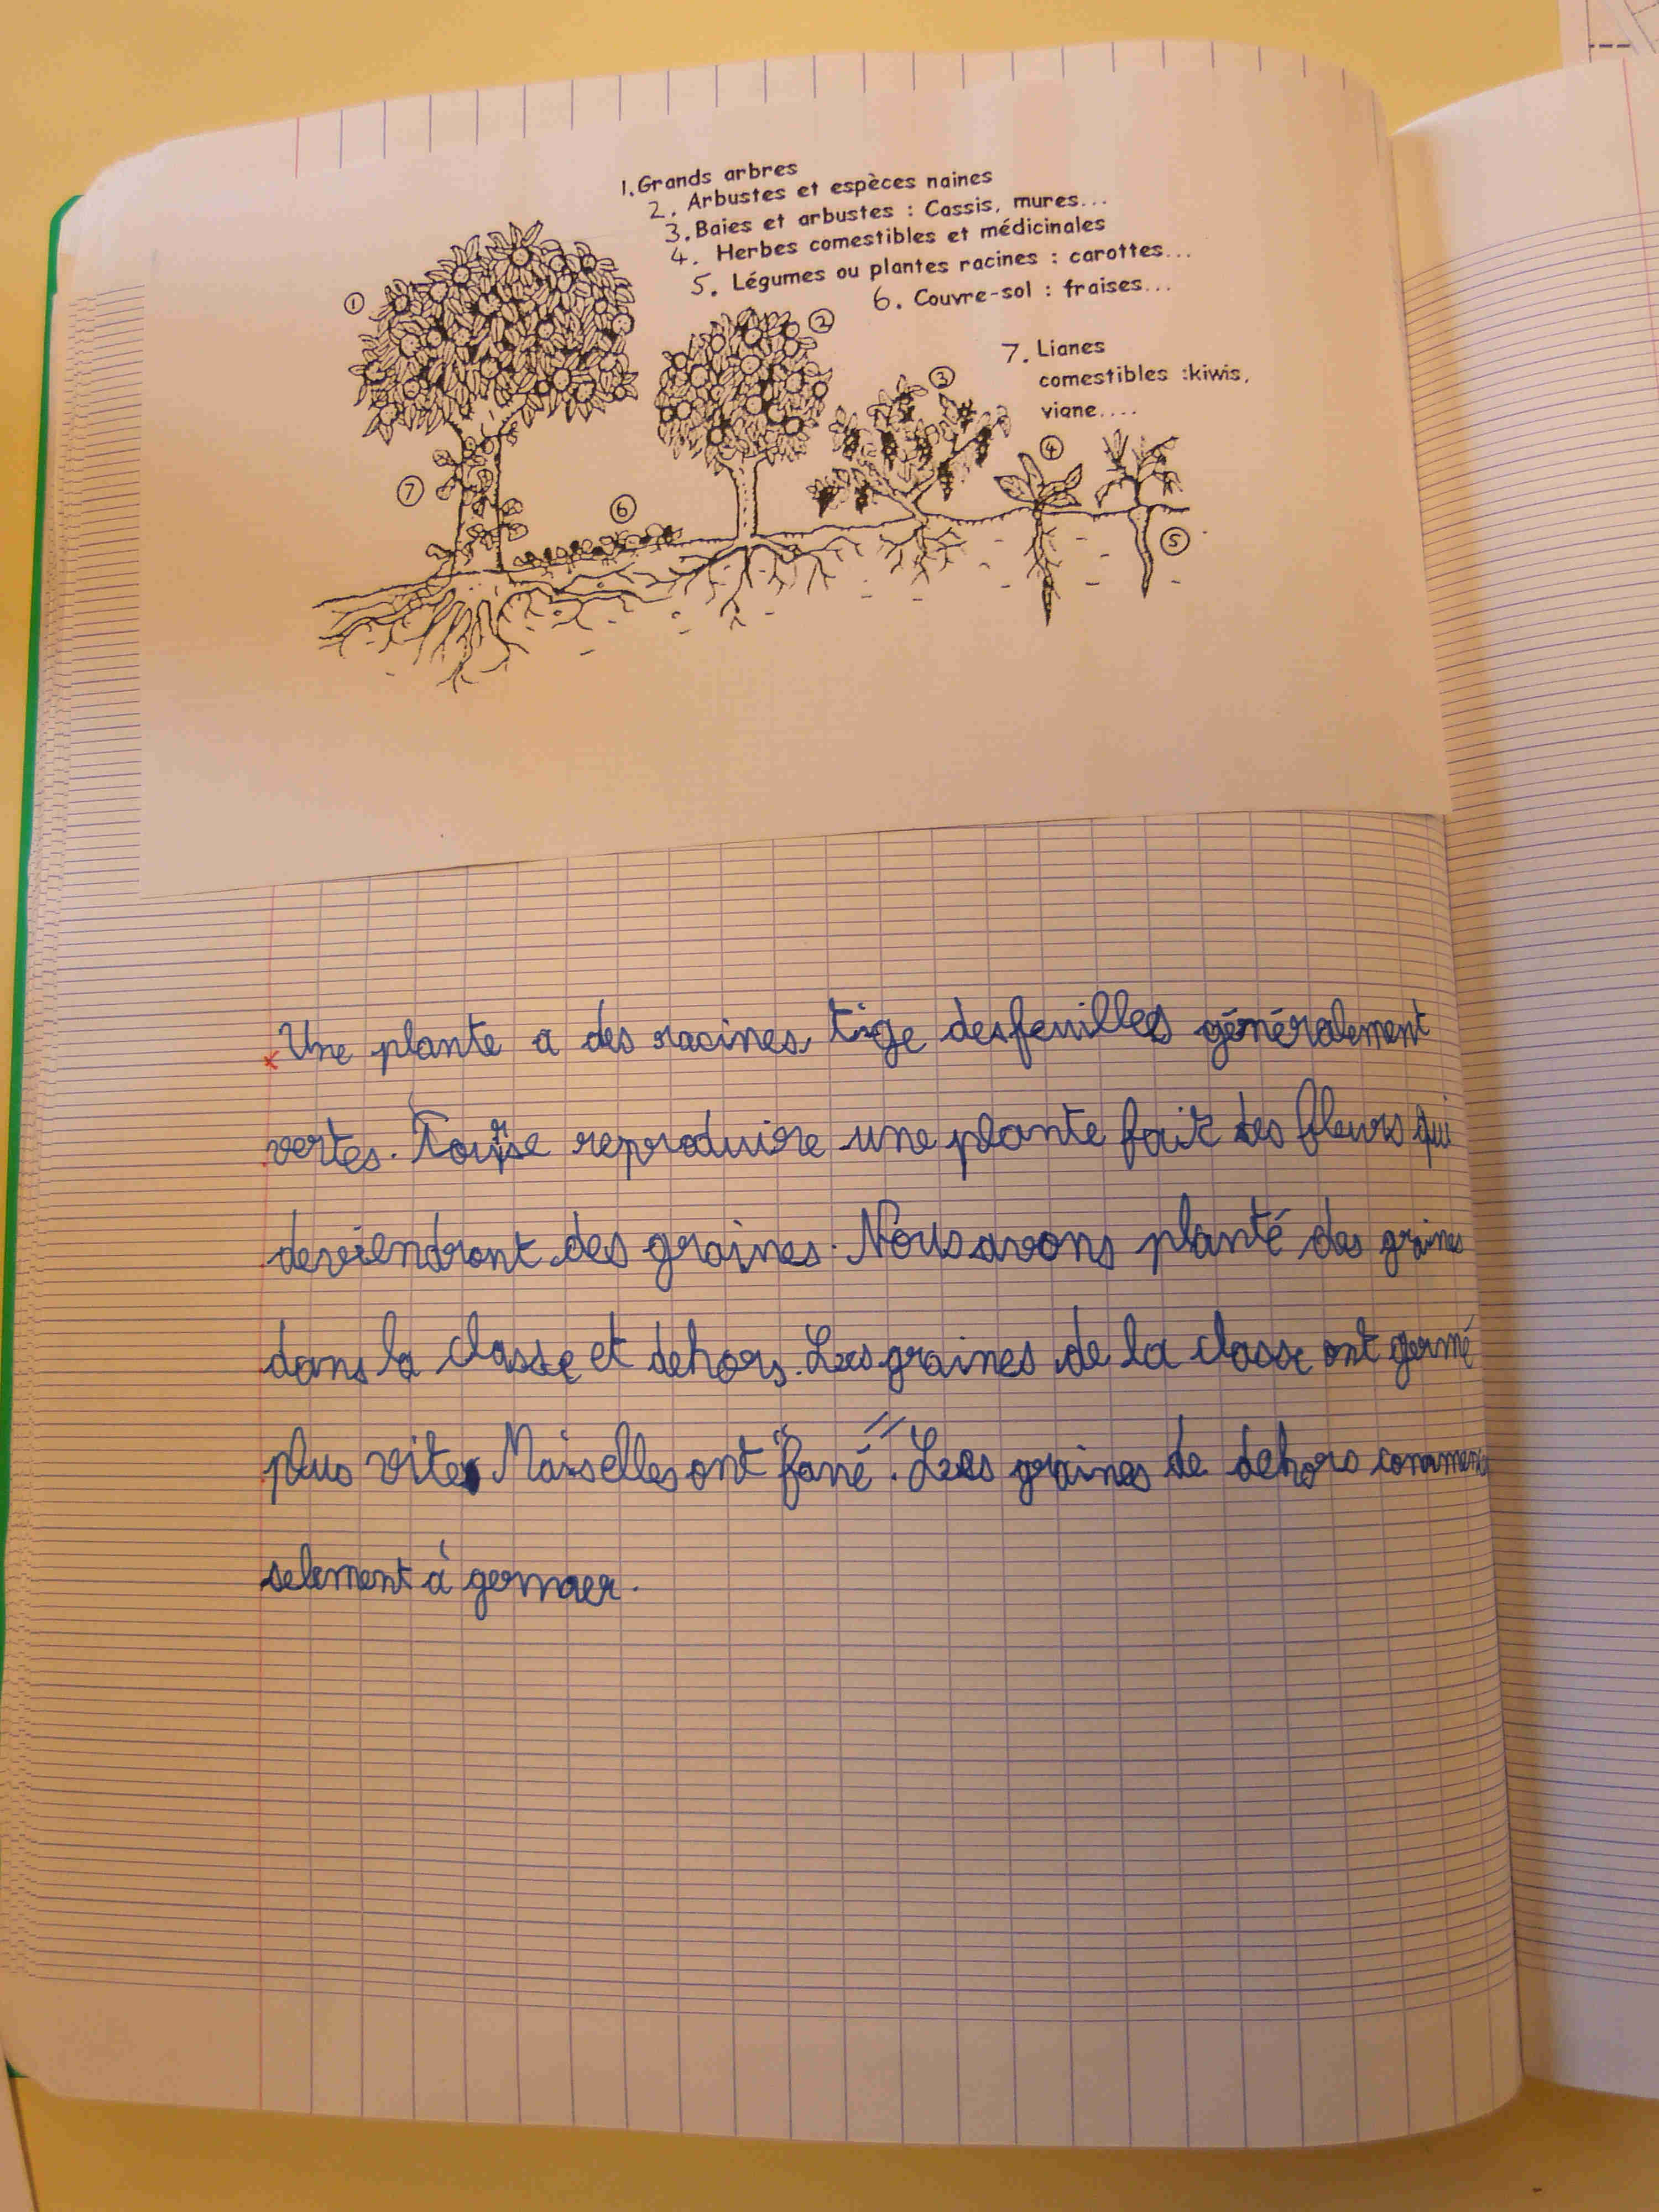 1. Grands arbres
2. Arbustes et espèces naines
3. Baies et arbustes : Cassis, mures...
4. Herbes comestibles et médicinales
5. Légumes ou plantes racines : carottes...
6. Couvre-sol : fraises...
7. Lianes
comestibles :kiwis,
viane....
1
2
3
4
5
6
7
Une plante a des racines, tige des feuilles généralement
vertes. Pour se reproduire une plante fait des fleurs qui
deviendront des graines. Nous avons planté des graines
dans la classe et dehors. Les graines de la classe ont germé
plus vite. Mais elles ont "fané". Les graines de dehors commence
selement à germer.